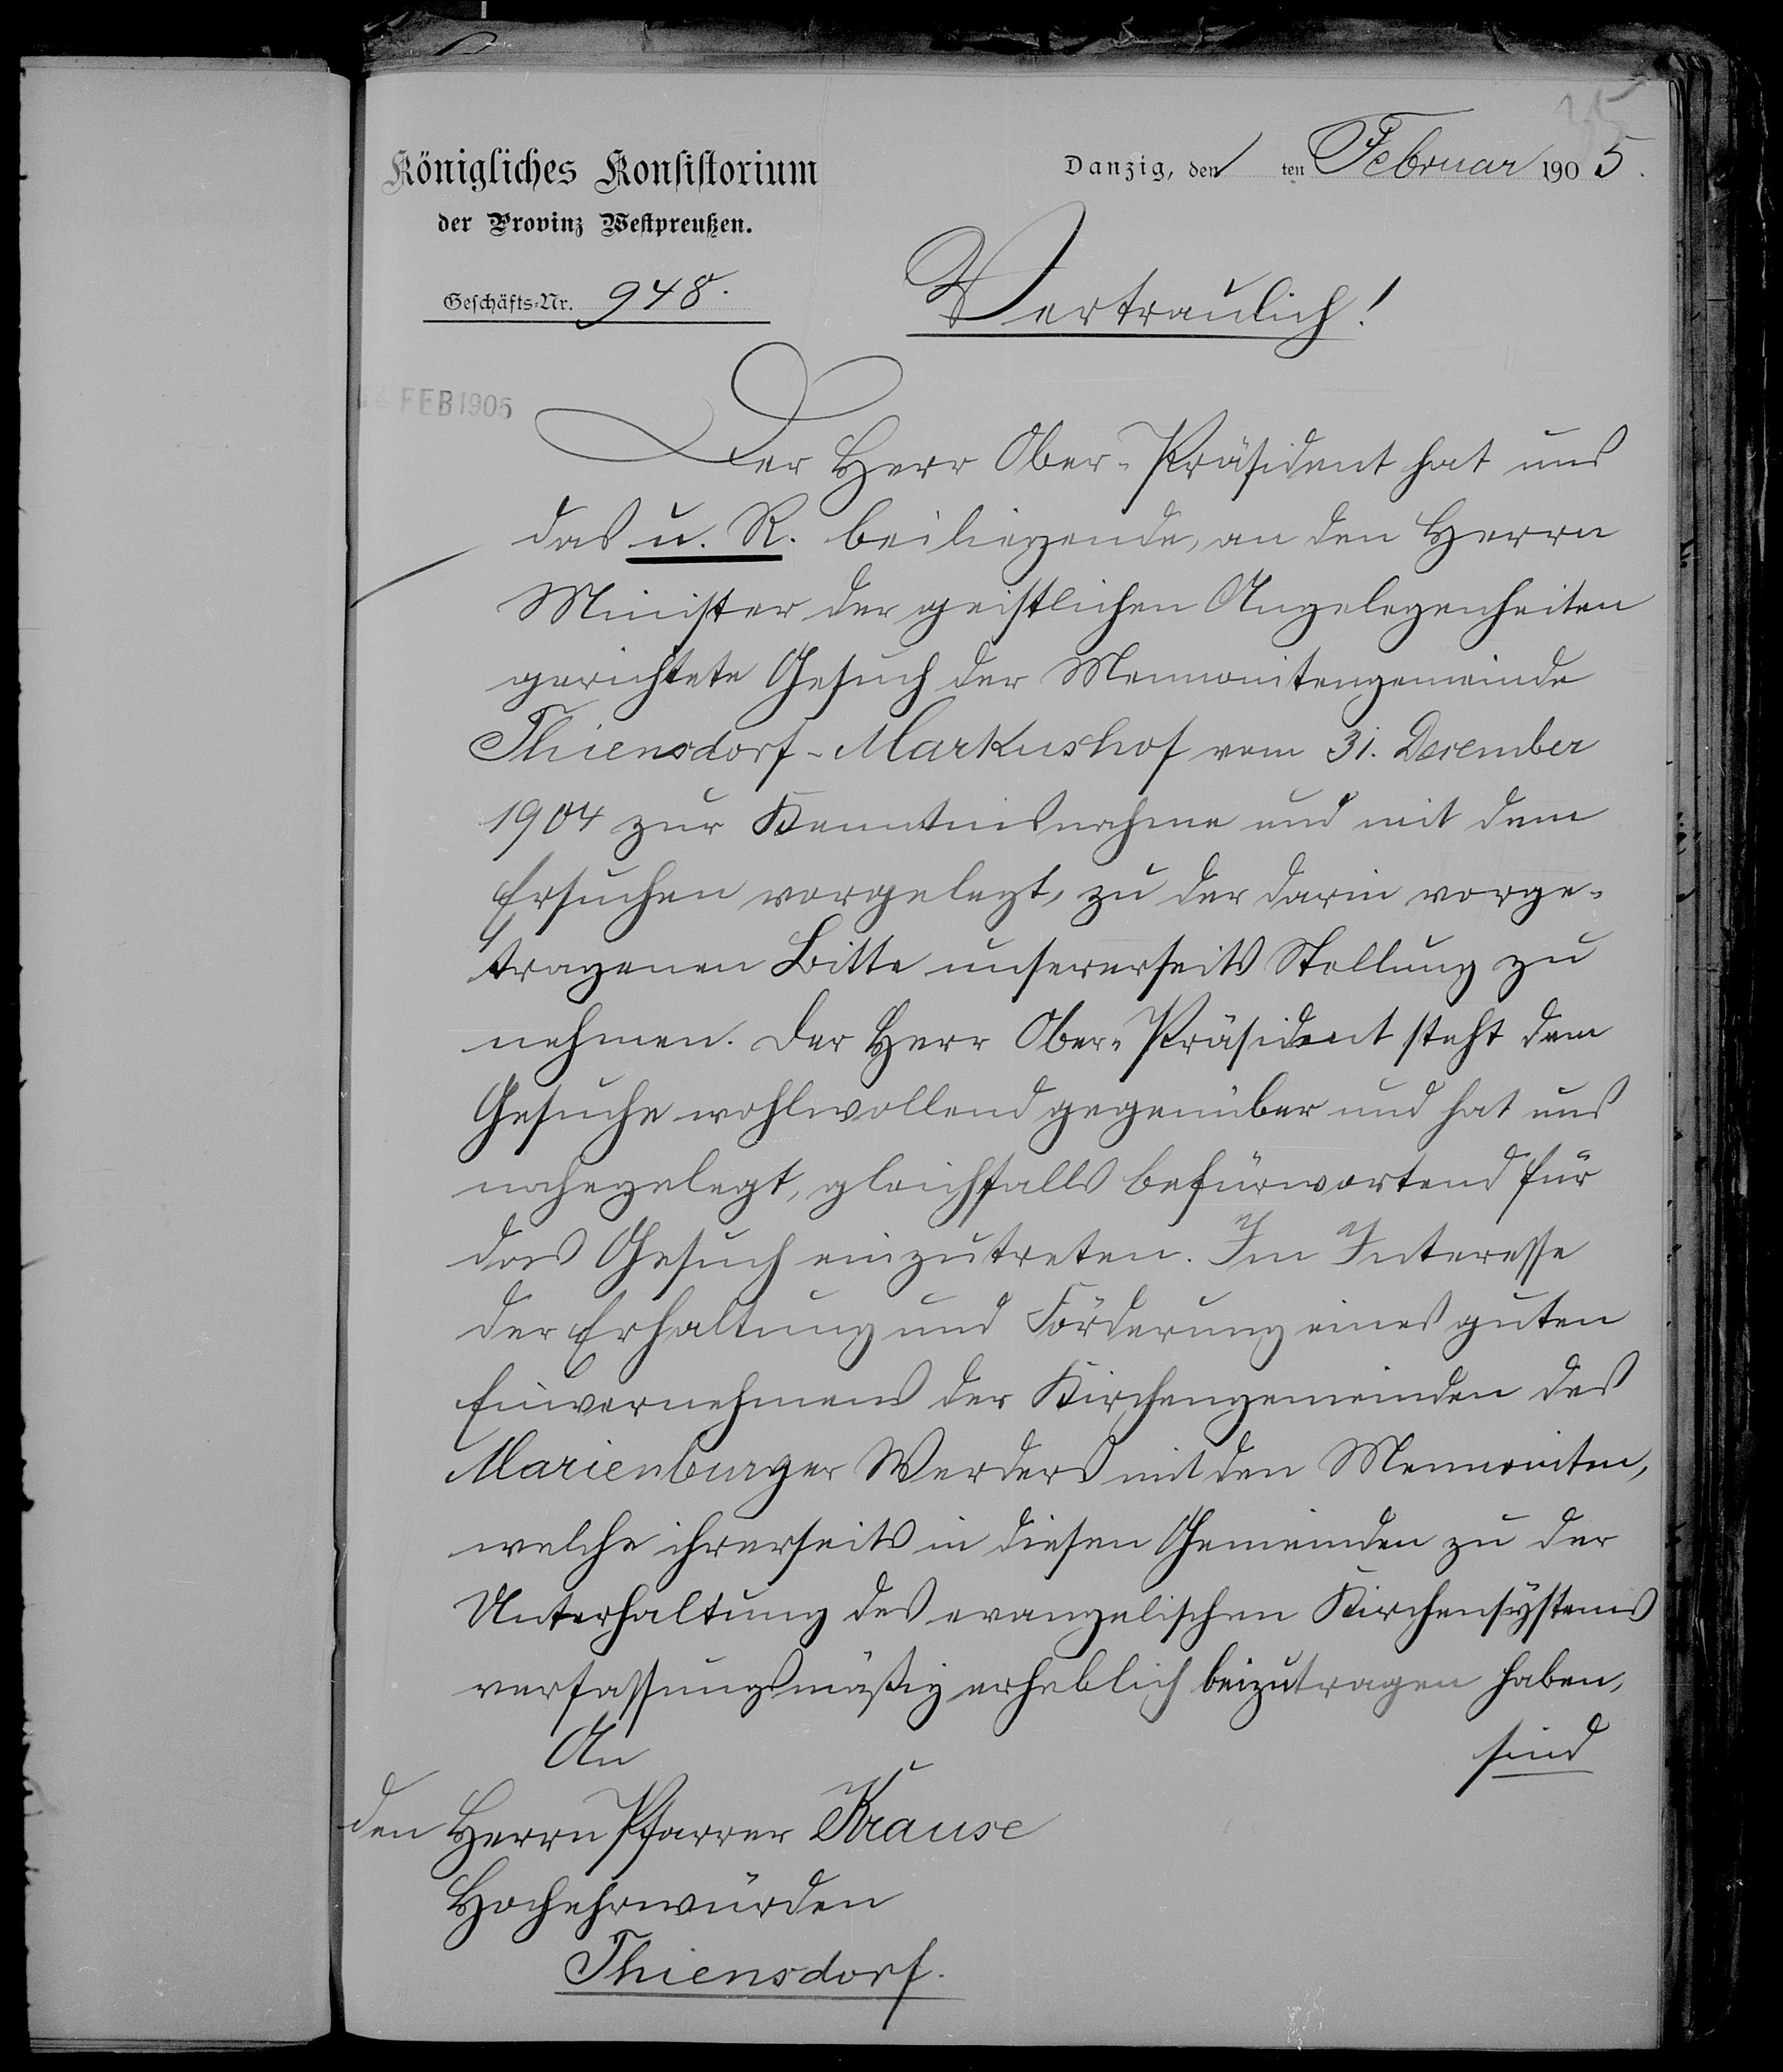 Königliches Konsistorium
der Provinz Westpreußen.
Geschäfts-Nr. 948.
Danzig, den 1 ten Februar 1905.
Vertraulich!
FEB 1905
Der Herr Ober-Präsident hat uns
das u. R. beiliegende, an den Herrn
Minister der geistlichen Angelegenheiten
gerichtete Gesuch der Mennonitengemeinde
Thiensdorf-Markushof vom 31. Dezember
1904 zur Kenntnisnahme und mit dem
Ersuchen vorgelegt, zu der darin vorge-
tragenen Bitte unsererseits Stellung zu
nehmen. Der Herr Ober-Präsident steht dem
Gesuche wohlwollend gegenüber und hat uns
nahegelegt, gleichfalls befürwortend für
das Gesuch einzutreten. Im Interesse
der Erhaltung und Förderung eines guten
Einvernehmens der Kirchengemeinden des
Marienburger Werders mit den Mennoniten,
welche ihrerseits in diesen Gemeinden zu der
Unterhaltung des evangelischen Kirchensystems
verfassungsmäßig erheblich beizutragen haben,
sind
An
den Herrn Pfarrer Krause
Hochehrwürden
Thiensdorf.